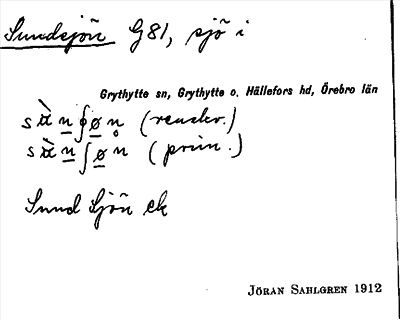 Sundsjön G81, sjö i
Grythytte sn, Grythytte o. Hällefors hd, Örebro län
(renskr.)
(prim.)
Sund Sjön ek
JÖRAN SAHLGREN 1912